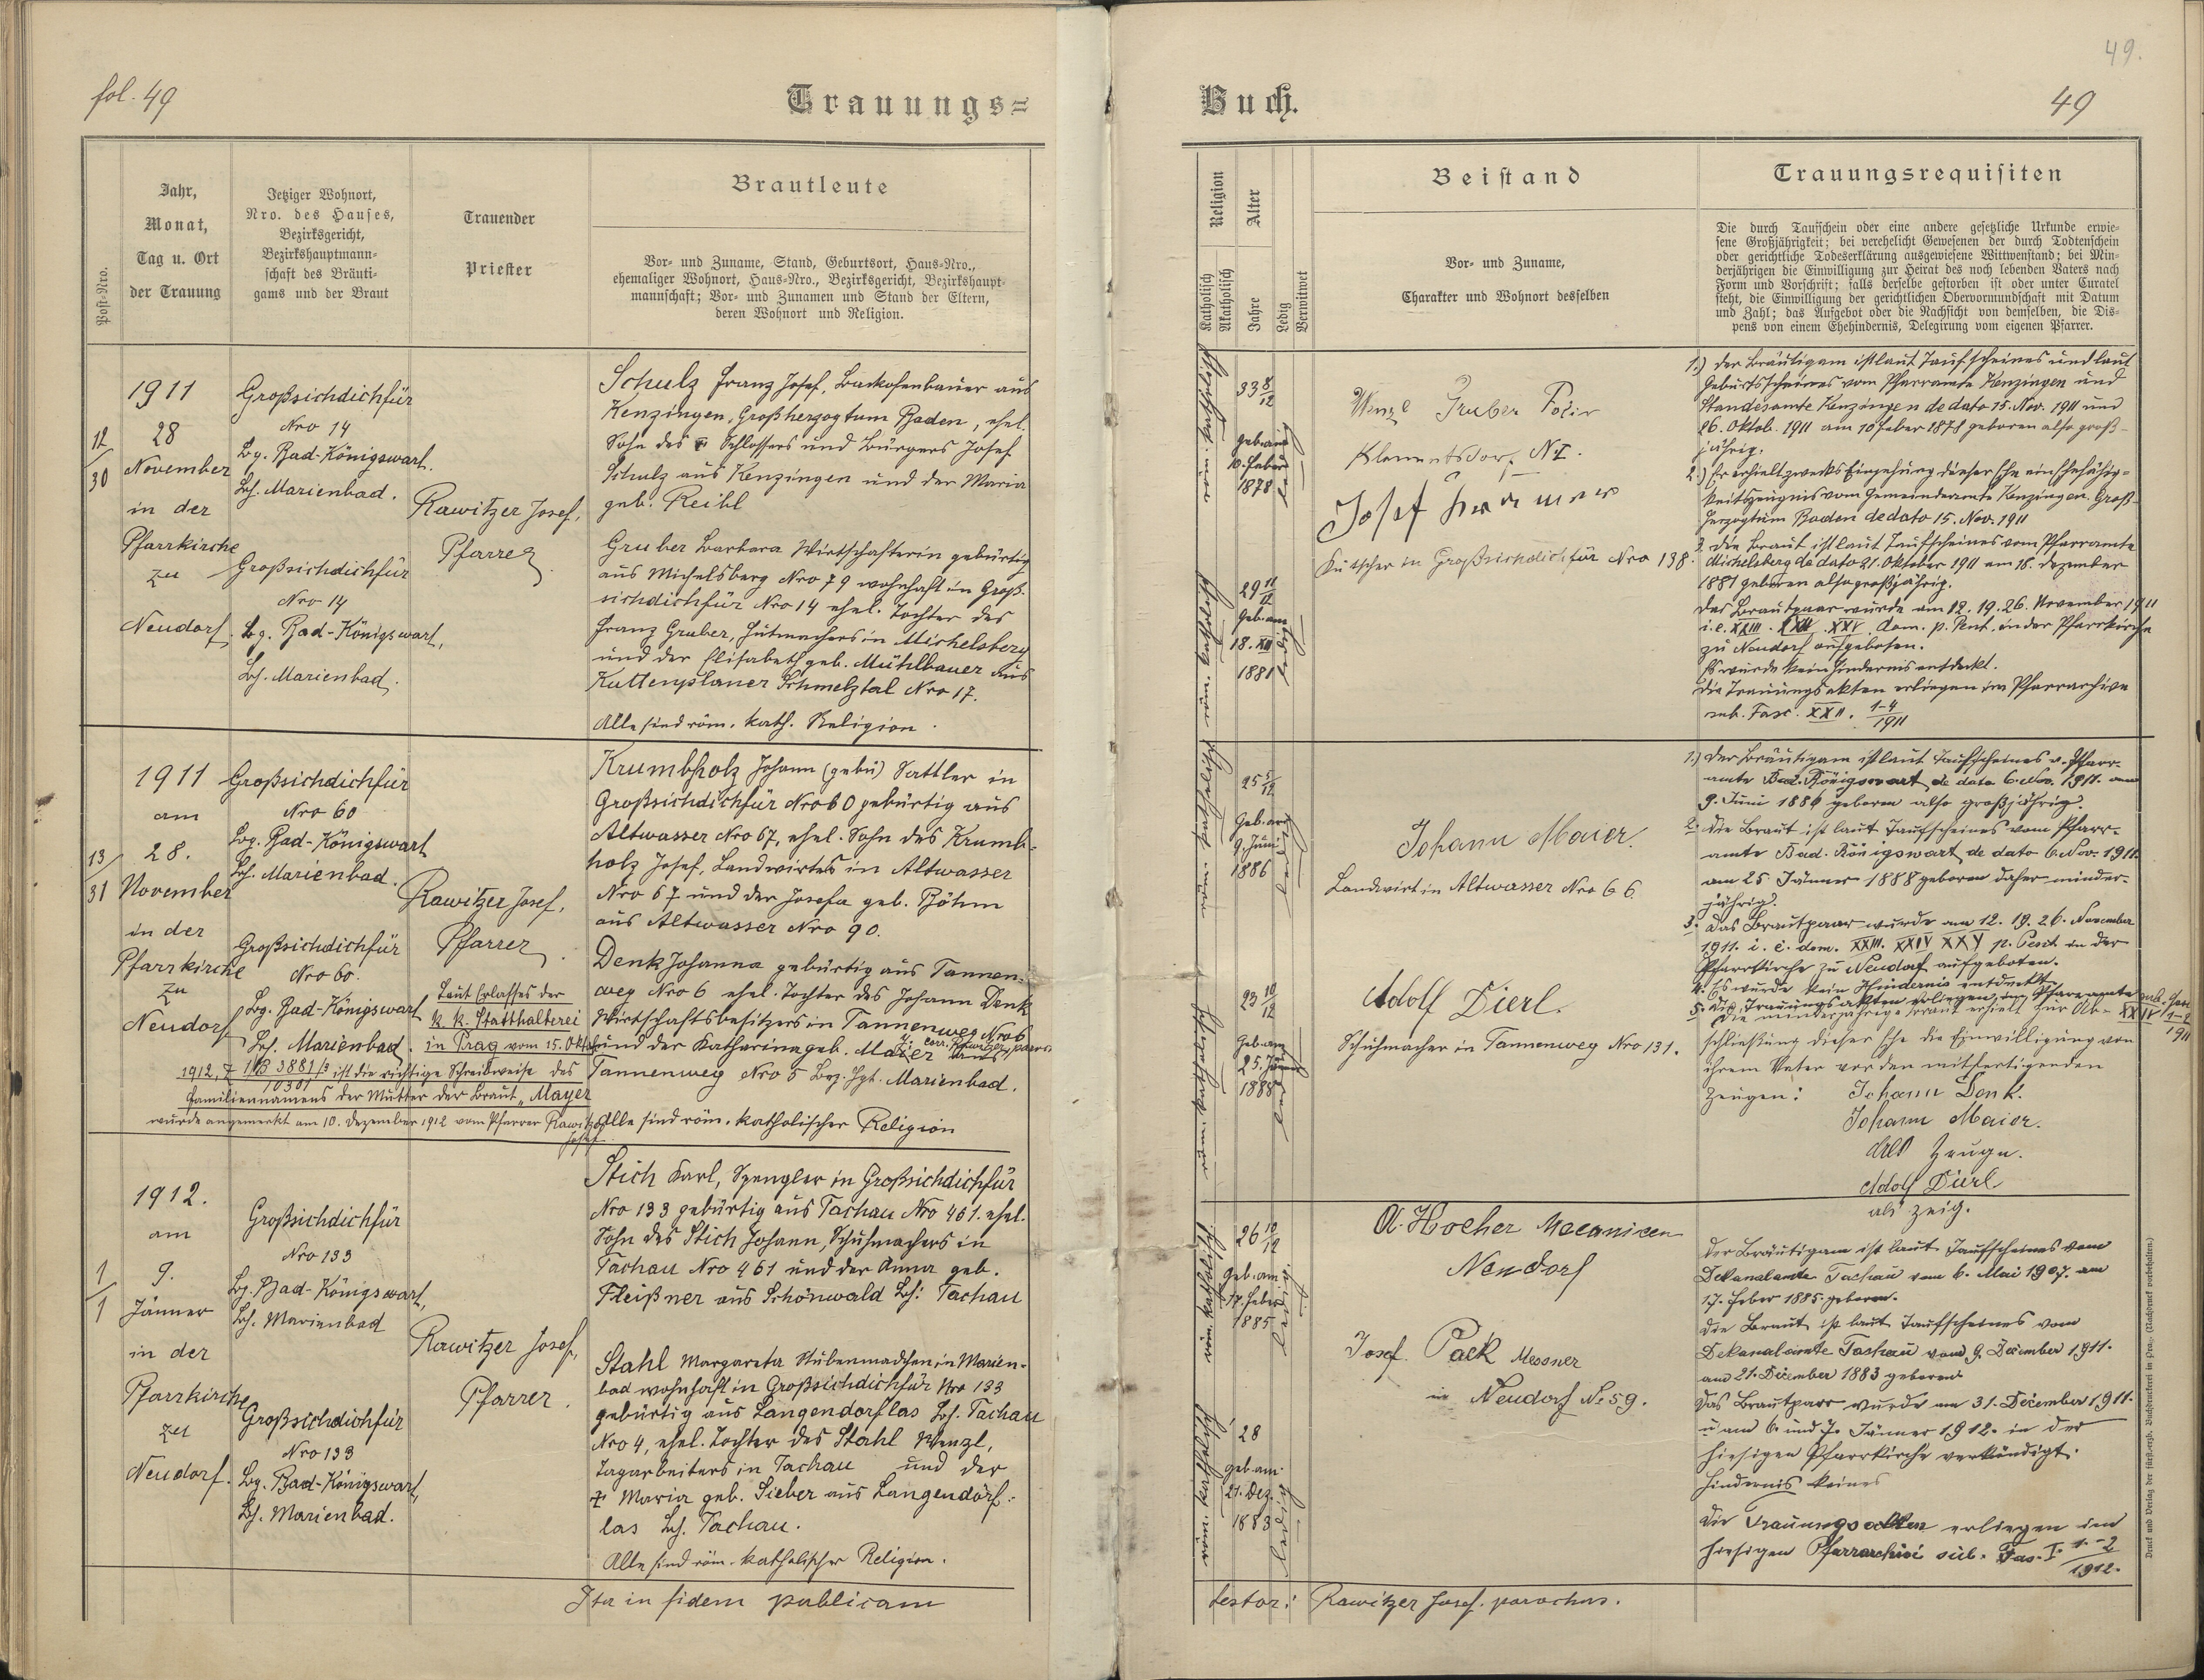 fol. 49
Trauungs=
Post-Nro.
Jahr,
Monat,
Tag u. Ort
der Trauung
Jetziger Wohnort,
Nro. des Hauses,
Bezirksgericht,
Bezirkshauptmann-
schaft des Bräuti-
gams und der Braut
Trauender
Priester
Brautleute
Vor- und Zuname, Stand, Geburtsort, Haus-Nro.,
ehemaliger Wohnort, Haus-Nro., Bezirksgericht, Bezirkshaupt-
mannschaft; Vor- und Zunamen und Stand der Eltern,
deren Wohnort und Religion.
12/30
1911
28
November
in der
Pfarrkirche
zu
Neudorf.
Großsichdichfür
Nro 14
Bg. Bad-Königswart.
Bh. Marienbad.
Großsichdichfür
Nro 14
Bg. Bad-Königswart,
Bh. Marienbad.
Rawitzer Josef,
Pfarrer
Schulz Franz Josef, Backofenbauer aus
Kenzingen, Großherzogtum Baden, ehel.
Sohn des Schlossers und Bürgers Josef
Schulz aus Kenzingen und der Maria
geb. Reibl
Gruber Barbara Wirtschafterin gebürtig
aus Michelsberg Nro 79 wohnhaft in Groß-
sichdichfür Nro 14 ehel. Tochter des
Franz Gruber, Hutmachers in Michelsberg
und der Elisabeth geb. Mühlbauer aus
Kuttenplaner Schmelztal Nro 17.
Alle sind röm. kath. Religion.
13/31
1911
am
28.
November
in der
Pfarrkirche
zu
Neudorf
Großsichdichfür
Nro 60
Bg. Bad-Königswart
Bh. Marienbad.
Großsichdichfür
Nro 60.
Bg. Bad-Königswart
Bh. Marienbad.
Rawitzer Josef,
Pfarrer.
Laut Erlasses der
k. k. Statthalterei
in Prag vom 15. Okt.
1912, Z 10/B 3881/3 ist die richtige Schreibweise des
10301
Familiennamens der Mutter der Braut „Mayer
wurde angemerkt am 10. Dezember 1912 vom Pfarrer Rawitzer
Josef
Krumbholz Johann (gebü) Sattler in
Großsichdichfür Nro 60 gebürtig aus
Altwasser Nro 67, ehel. Sohn des Krumb-
holz Josef, Landwirtes in Altwasser
Nro 67 und der Josefa geb. Böhm
aus Altwasser Nro 90.
Denk Johanna gebürtig aus Tannen-
weg Nro 6 ehel. Tochter des Johann Denk
Wirtschaftsbesitzers in Tannenweg Nro 6
und der Katharina geb. Maier aus
Tannenweg Nro 5 Bez. Hpt. Marienbad.
Alle sind röm. katholischer Religion
1/1
1912.
am
9.
Jänner
in der
Pfarrkirche
zu
Neudorf.
Großsichdichfür
Nro 133
Bg. Bad-Königswart,
Bh. Marienbad
Großsichdichfür
Nro 133
Bg. Bad-Königswart,
Bh. Marienbad.
Rawitzer Josef,
Pfarrer.
Stich Karl, Spengler in Großsichdichfür
Nro 133 gebürtig aus Tachau Nro 461. ehel.
Sohn des Stich Johann, Schuhmachers in
Tachau Nro 461 und der Anna geb.
Fleißner aus Schönwald Bh: Tachau
Stahl Margareta Stubenmädchen in Marien-
bad wohnhaft in Großsichdichfür Nro 133
gebürtig aus Langendörflas Bh. Tachau
Nro 4, ehel. Tochter des Stahl Wenzl,
Tagarbeiters in Tachau und der
† Maria geb. Sieber aus Langendörf-
las Bh. Tachau.
Alle sind röm. katholischer Religion.
Ita in fidem publicam
49.
Buch.
49
Religion
Katholisch
Akatholisch
Alter
Jahre
Ledig
Verwitwet
Beistand
Vor- und Zuname,
Charakter und Wohnort desselben
Trauungsrequisiten
Die durch Taufschein oder eine andere gesetzliche Urkunde erwie-
sene Großjährigkeit; bei verehelicht Gewesenen der durch Todtenschein
oder gerichtliche Todeserklärung ausgewiesene Wittwenstand; bei Min-
derjährigen die Einwilligung zur Heirat des noch lebenden Vaters nach
Form und Vorschrift; falls derselbe gestorben ist oder unter Curatel
steht, die Einwilligung der gerichtlichen Obervormundschaft mit Datum
und Zahl; das Aufgebot oder die Nachsicht von demselben, die Dis-
pens von einem Ehehindernis, Delegirung vom eigenen Pfarrer.
33 8/12
geb. am
10. Feber
1878
29 11/12
Geb. am
18. XII
1881
ledig
Wenzl Gruber
Klementsdorf N I.
Josef
Kutscher in Großsichdichfür Nro 138.
1.) Der Bräutigam ist laut Taufscheines und laut
Geburtsscheines vom Pfarramte Kenzingen und
Standesamte Kenzingen de dato 15. Nov. 1911 und
26. Oktob. 1911 am 10 Feber 1878 geboren also groß-
jährig.
2.) Er erhielt zwecks Eingehung dieser Ehe ein Ehefähig-
keitszeugnis vom Gemeindeamte Kenzingen. Groß-
herzogtum Baden de dato 15. Nov. 1911
3. Die Braut ist laut Taufscheines vom Pfarramte
Michelsberg de dato 21. Oktober 1911 am 18. Dezember
1881 geboren also großjährig.
Das Brautpaar wurde am 12. 19. 26. November 1911
i. e. XXIII. XXIV. XXV dom. p. Pent. in der Pfarrkirche
zu Neudorf aufgeboten.
Es wurde kein Hindernis entdeckt.
Die Trauungsakten erliegen im Pfarrarchive
sub. Fasc. XXII. 1-4/1911
25 5/12
Geb. am
9. Juni
1886
ledig
23 10/12
Geb. am
25. Jänner
1888
ledig
Johann Maier.
Landwirt in Altwasser Nro 66.
Adolf Dierl.
Schuhmacher in Tannenweg Nro 131.
1.) Der Bräutigam ist laut Taufscheines v. Pfarr-
amte Bad. Königswart de dato 6. Nov. 1911. am
9. Juni 1886 geboren also großjährig.
2. Die Braut ist laut Taufscheines vom Pfarr-
amte Bad. Königswart de dato 6. Nov. 1911
am 25 Jänner 1888 geboren daher minder-
jährig.
3. Das Brautpaar wurde am 12. 19. 26. November
1911. i. e. dom. XXIII. XXIV XXV p. Pent. in der
Pfarrkirche zu Neudorf aufgeboten.
4. Es wurde kein Hindernis entdeckt.
5. Die Trauungsakten erliegen im Pfarramte sub. Fas.
XXIV 1-2/1911
Die minderjährige Braut erhielt zur Ab-
schließung dieser Ehe die Einwilligung von
ihrem Vater vor den mitfertigenden
Zeugen: Johann Denk.
Johann Maier.
als Zeuge.
Adolf Dierl
als Zeig.
26 10/12
Geb. am
17. Feber
1885
ledig
28
geb. am
21. Dez.
1883
ledig
A. Hocher Mecaniken
Neudorf
Josef Pack Messner
in Neudorf No 59.
Der Bräutigam ist laut Taufscheines vom
Dekanalamte Tachau vom 6. Mai 1907. am
17. Feber 1885 geboren.
Die Braut ist laut Taufscheines vom
Dekanalamte Tachau vom 9. Dezember 1911.
am 21. Dezember 1883 geboren
Das Brautpaar wurde am 31. Dezember 1911.
u am 6. und 7. Jänner 1912. in der
hiesigen Pfarrkirche verkündigt.
Hindernis keines
Die Trauungsakten erliegen im
hiesigen Pfarrarchivi sub. Fas. I. 1.-2/1912.
testor: Rawitzer Josef. parochus.
Druck und Verlag der fürst.-erzb. Buchdruckerei in Prag. (Nachdruck vorbehalten.)